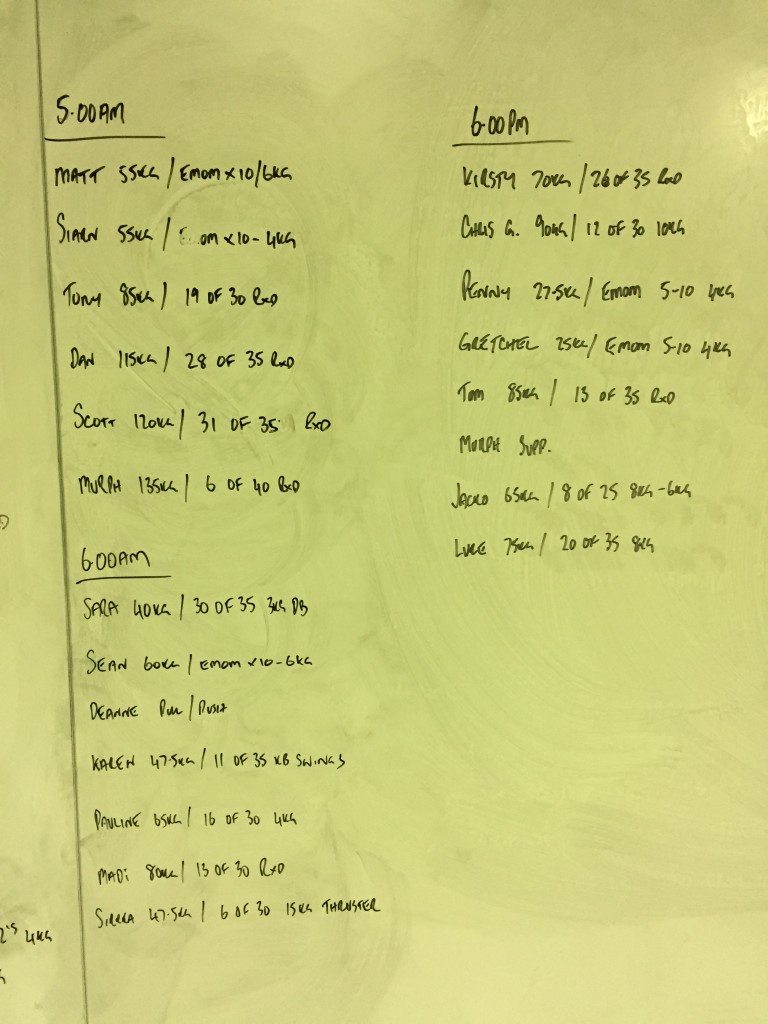 5.00AM
MATT 55KG / EMOM x 10/6KG
SIARN 55KG / OM x 10 - 4KG
TONY 85KG / 19 OF 30 RxD
DAN 115KG / 28 OF 35 RxD
SCOTT 120KG / 31 OF 35 RxD
MURPH 135KG / 6 OF 40 RxD
6.00AM
SARA 40KG / 30 OF 35 3KG DB
SEAN 60KG / EMOM x 10 - 6KG
DEANNE PULL / PUSH
KAREN 47.5KG / 11 OF 35 KB SWINGS
PAULINE 65KG / 16 OF 30 4KG
MADI 80KG / 13 OF 30 RxD
47.5KG / 6 OF 30 15KG THRUSTER
6.00PM
KIRSTY 70KG / 26 OF 35 RxD
CHRIS G. 90KG / 12 OF 30 10KG
PENNY 27.5KG / EMOM 5-10 4KG
GRETCHEL 25KG / EMOM 5-10 4KG
TOM 85KG / 13 OF 35 RxD
MURPH SUPP.
JACKO 65KG / 8 OF 25 8KG - 6KG
LUKE 75KG / 20 OF 35 8KG
4KG